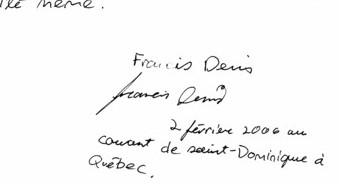 même.
Francis Denis
Francis Denis
2 février 2006 au
couvent de saint-Dominique à
Québec.